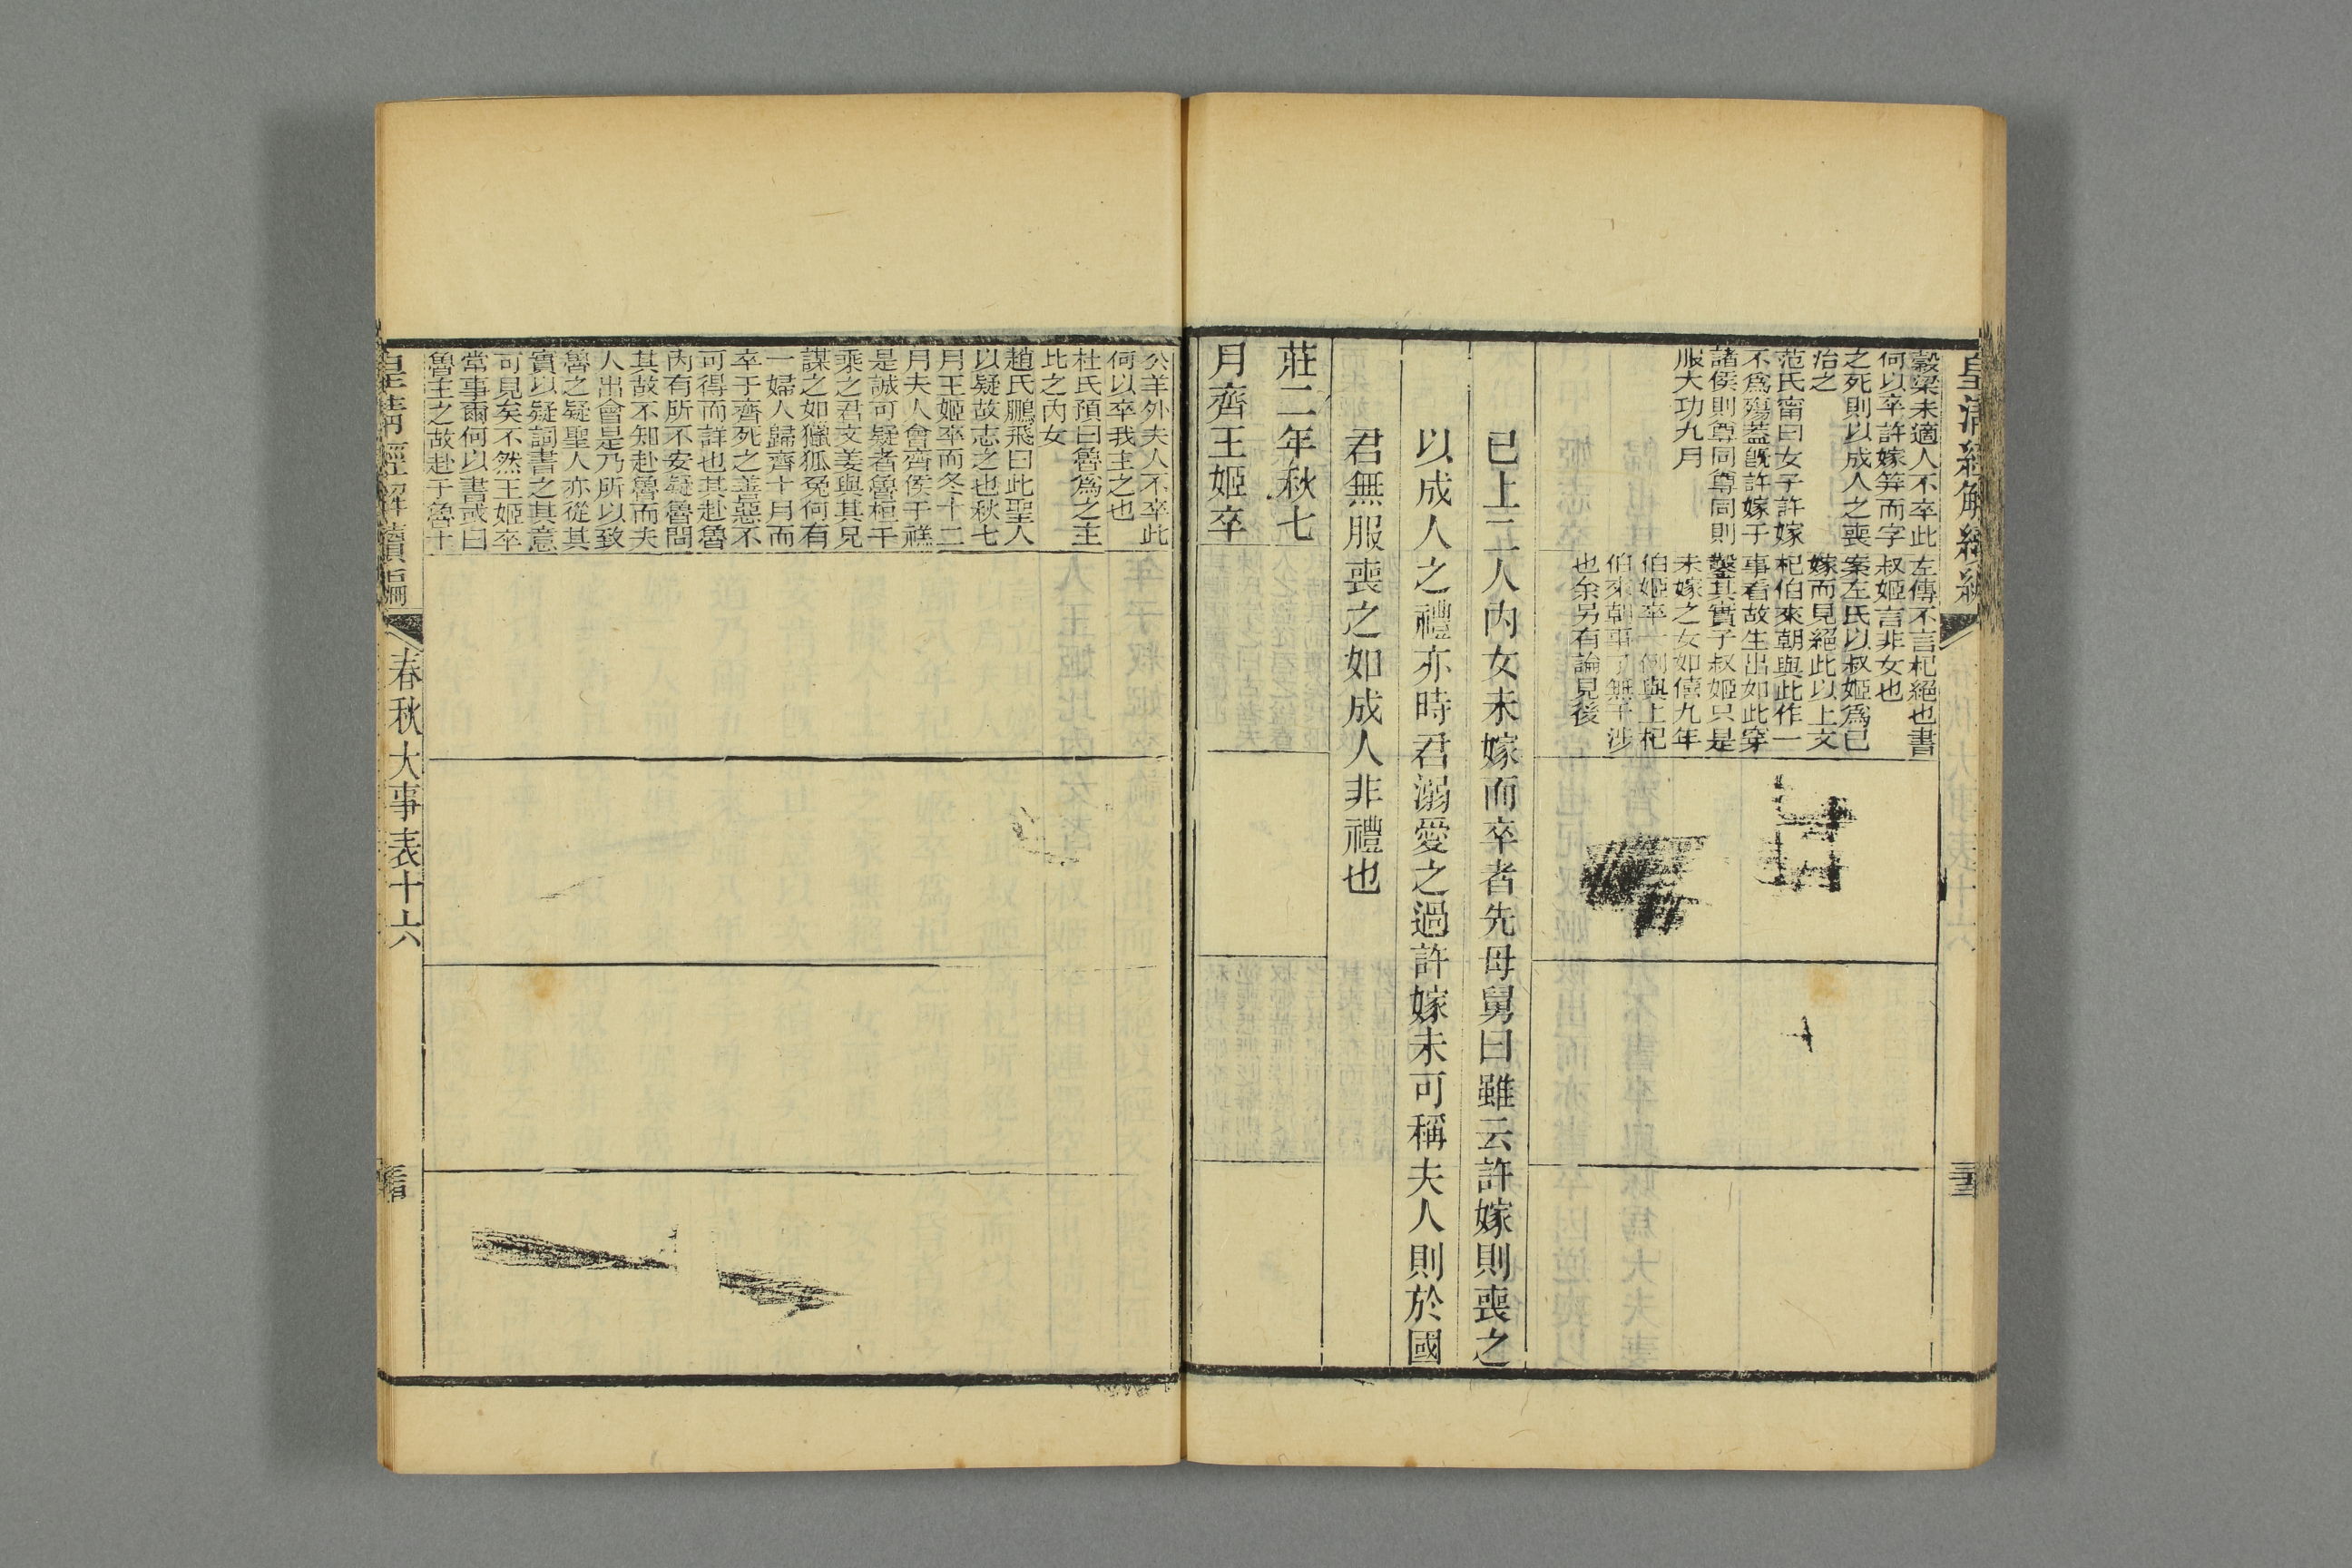 皇清經解續編
穀梁未適人不卒此
何以卒許嫁笄而字
之死則以成人之喪
治之
范氏甯曰女子許嫁
不爲殤蓋旣許嫁于
諸侯則尊同尊同則
服大功九月
左傳不言杞絕也書
叔姬言非女也
案左氏以叔姬爲已
嫁而見絕此以上文
杞伯來朝與此作一
事看故生出如此穿
鑿其實子叔姬只是
未嫁之女如僖九年
伯姬卒一例與上杞
伯來朝事了無干涉
也余另有論見後
已上二人內女未嫁而卒者先母舅曰雖云許嫁則喪之
以成人之禮亦時君溺愛之過許嫁未可稱夫人則於國
君無服喪之如成人非禮也
莊二年秋七
月齊王姬卒
公羊外夫人不卒此
何以卒我主之也
杜氏預曰魯爲之主
比之內女
趙氏鵬飛曰此聖人
以疑故志之也秋七
月王姬卒而冬十二
月夫人會齊侯于禚
是誠可疑者魯桓千
乘之君文姜與其兄
謀之如獵狐兔何有
一婦人歸齊十月而
卒于齊死之善惡不
可得而詳也其赴魯
內有所不安疑魯問
其故不知赴魯而夫
人出會是乃所以致
魯之疑聖人亦從其
實以疑詞書之其意
可見矣不然王姬卒
常事爾何以書或曰
魯主之故赴于魯十
皇清經解續編
春秋大事表十六